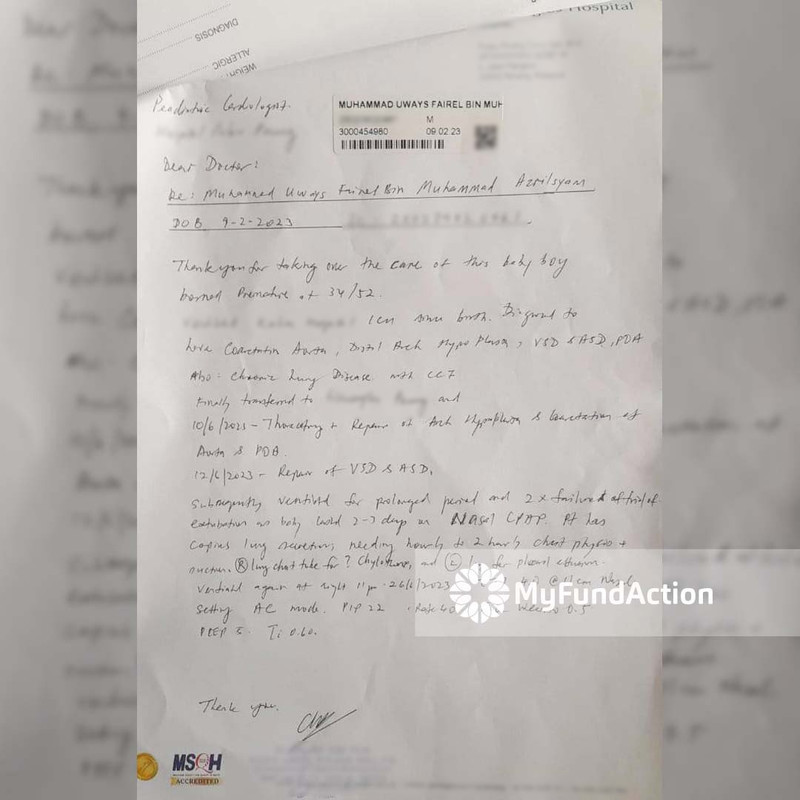 Hospital
DIAGNOSIS
ALLERGIC
WEIGH
MUHAMMAD UWAYS FAIREL BIN MUH
M
3000454980 09.02.23
Peadiatric Cardiologist.
Dear Doctor:
Re: Muhammad Uways Fairel Bin Muhammad Azrilsyam
DOB 9-2-2023
Thank you for taking over the care of this baby boy
borned Premature at 34/52.
ICU since birth. Diagnosed to
have Coarctation Aorta, Distal Arch Hypoplasia, VSD & ASD, PDA
Also: Chronic Lung Disease with
Finally transferred to and
10/6/2023 - Thoracotomy + Repair of Arch Hypoplasia & Coarctation of
Aorta & PDA.
12/6/2023 - Repair of VSD & ASD.
Subsequently ventilated for prolonged period and 2 x failure of trial of
extubation as baby lasted 2-3 days on Nasal CPAP. Pt has
copius lung secretion, needing hourly to 2 hourly chest physio +
suction. (R) lung chest tube for ? Chylothorax, and (L) for pleural effusion.
Ventilated again at night 11 pm. 26/6/2023 @ 11 cm Nasal
Setting AC mode. PIP 22 Rate 40 0.5
PEEP 5. Ti 0.60.
Thank you.
MyFundAction
MSQH
ACCREDITED